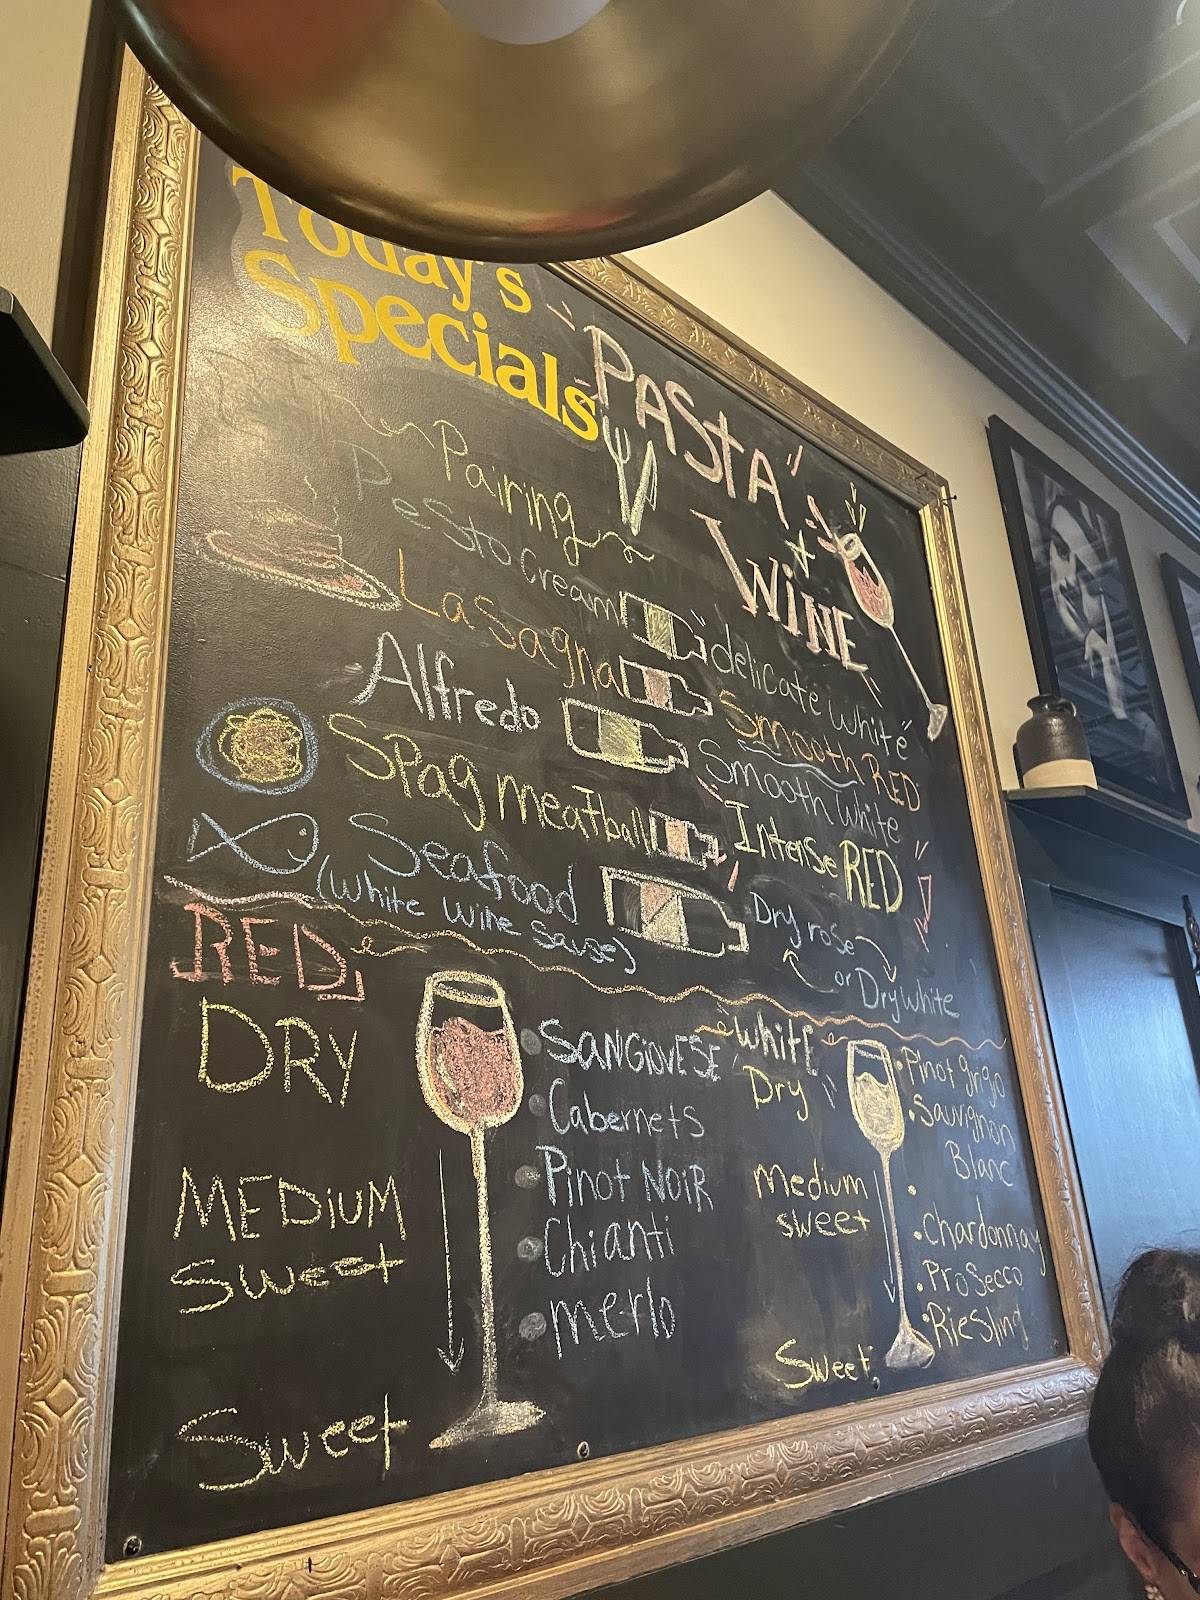 Today's
Specials
"PASTA"
+
WINE
Pairing
Pesto cream
"delicate white"
Lasagna
Smooth RED
Alfredo
Smooth White
Spag meatball
Intense RED
Seafood
(White wine sauce)
Dry rose
or Dry white
RED
DRY
MEDIUM
Sweet
Sweet
• SANGIOVESE
• Cabernets
• Pinot NOIR
• Chianti
• merlo
White
Dry
medium
sweet
Sweet
• Pinot grigo
• Sauvignon
Blanc
• Chardonnay
• Prosecco
• Riesling